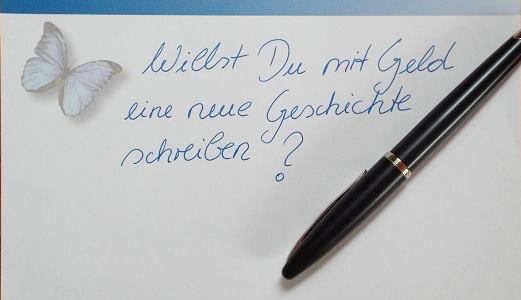 Willst Du mit Geld
eine neue Geschichte
schreiben ?